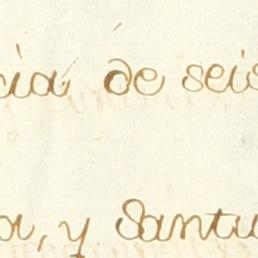 cia de seis
or, y Santu